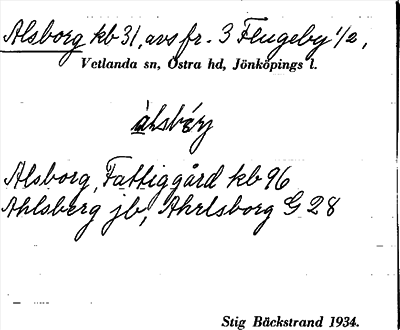 Alsborg kb 31, avs fr. 3 Flugeby 1/2,
Vetlanda sn, Östra hd, Jönköpings l.
àlsbǽrj
Alsborg, Fattiggård kb 96
Ahlsberg jb, Ahrlsborg G 28
Stig Bäckstrand 1934.